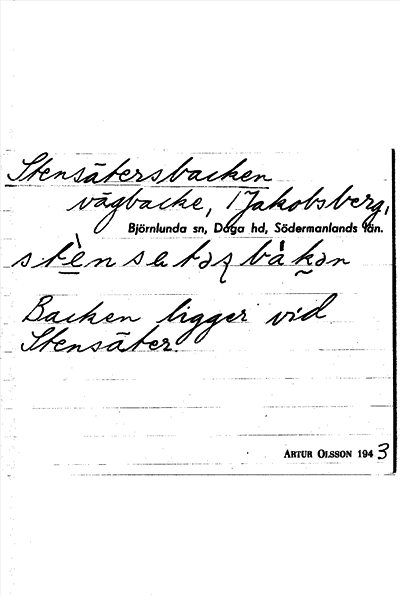 Stensätersbacken
vägbacke, Jakobsberg,
Björnlunda sn, Daga hd, Södermanlands län.
Backen ligger vid
Stensäter.
ARTUR OLSSON 1943